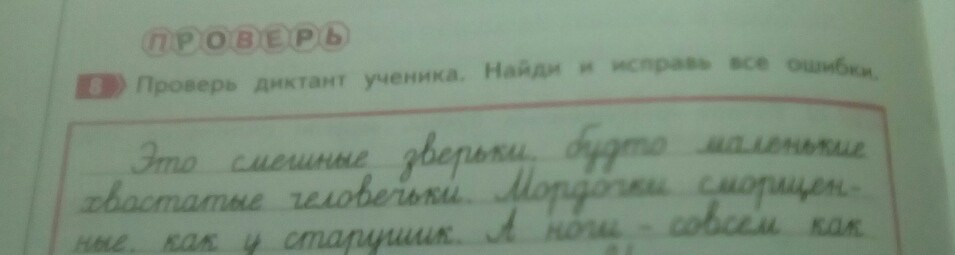 ПРОВЕРЬ
8 Проверь диктант ученика. Найди и исправь все ошибки.
Это смешные зверьки, будто маленькие
хвостатые человечьки. Мордочки сморщен-
ные, как у старушик. А ноги – совсем как